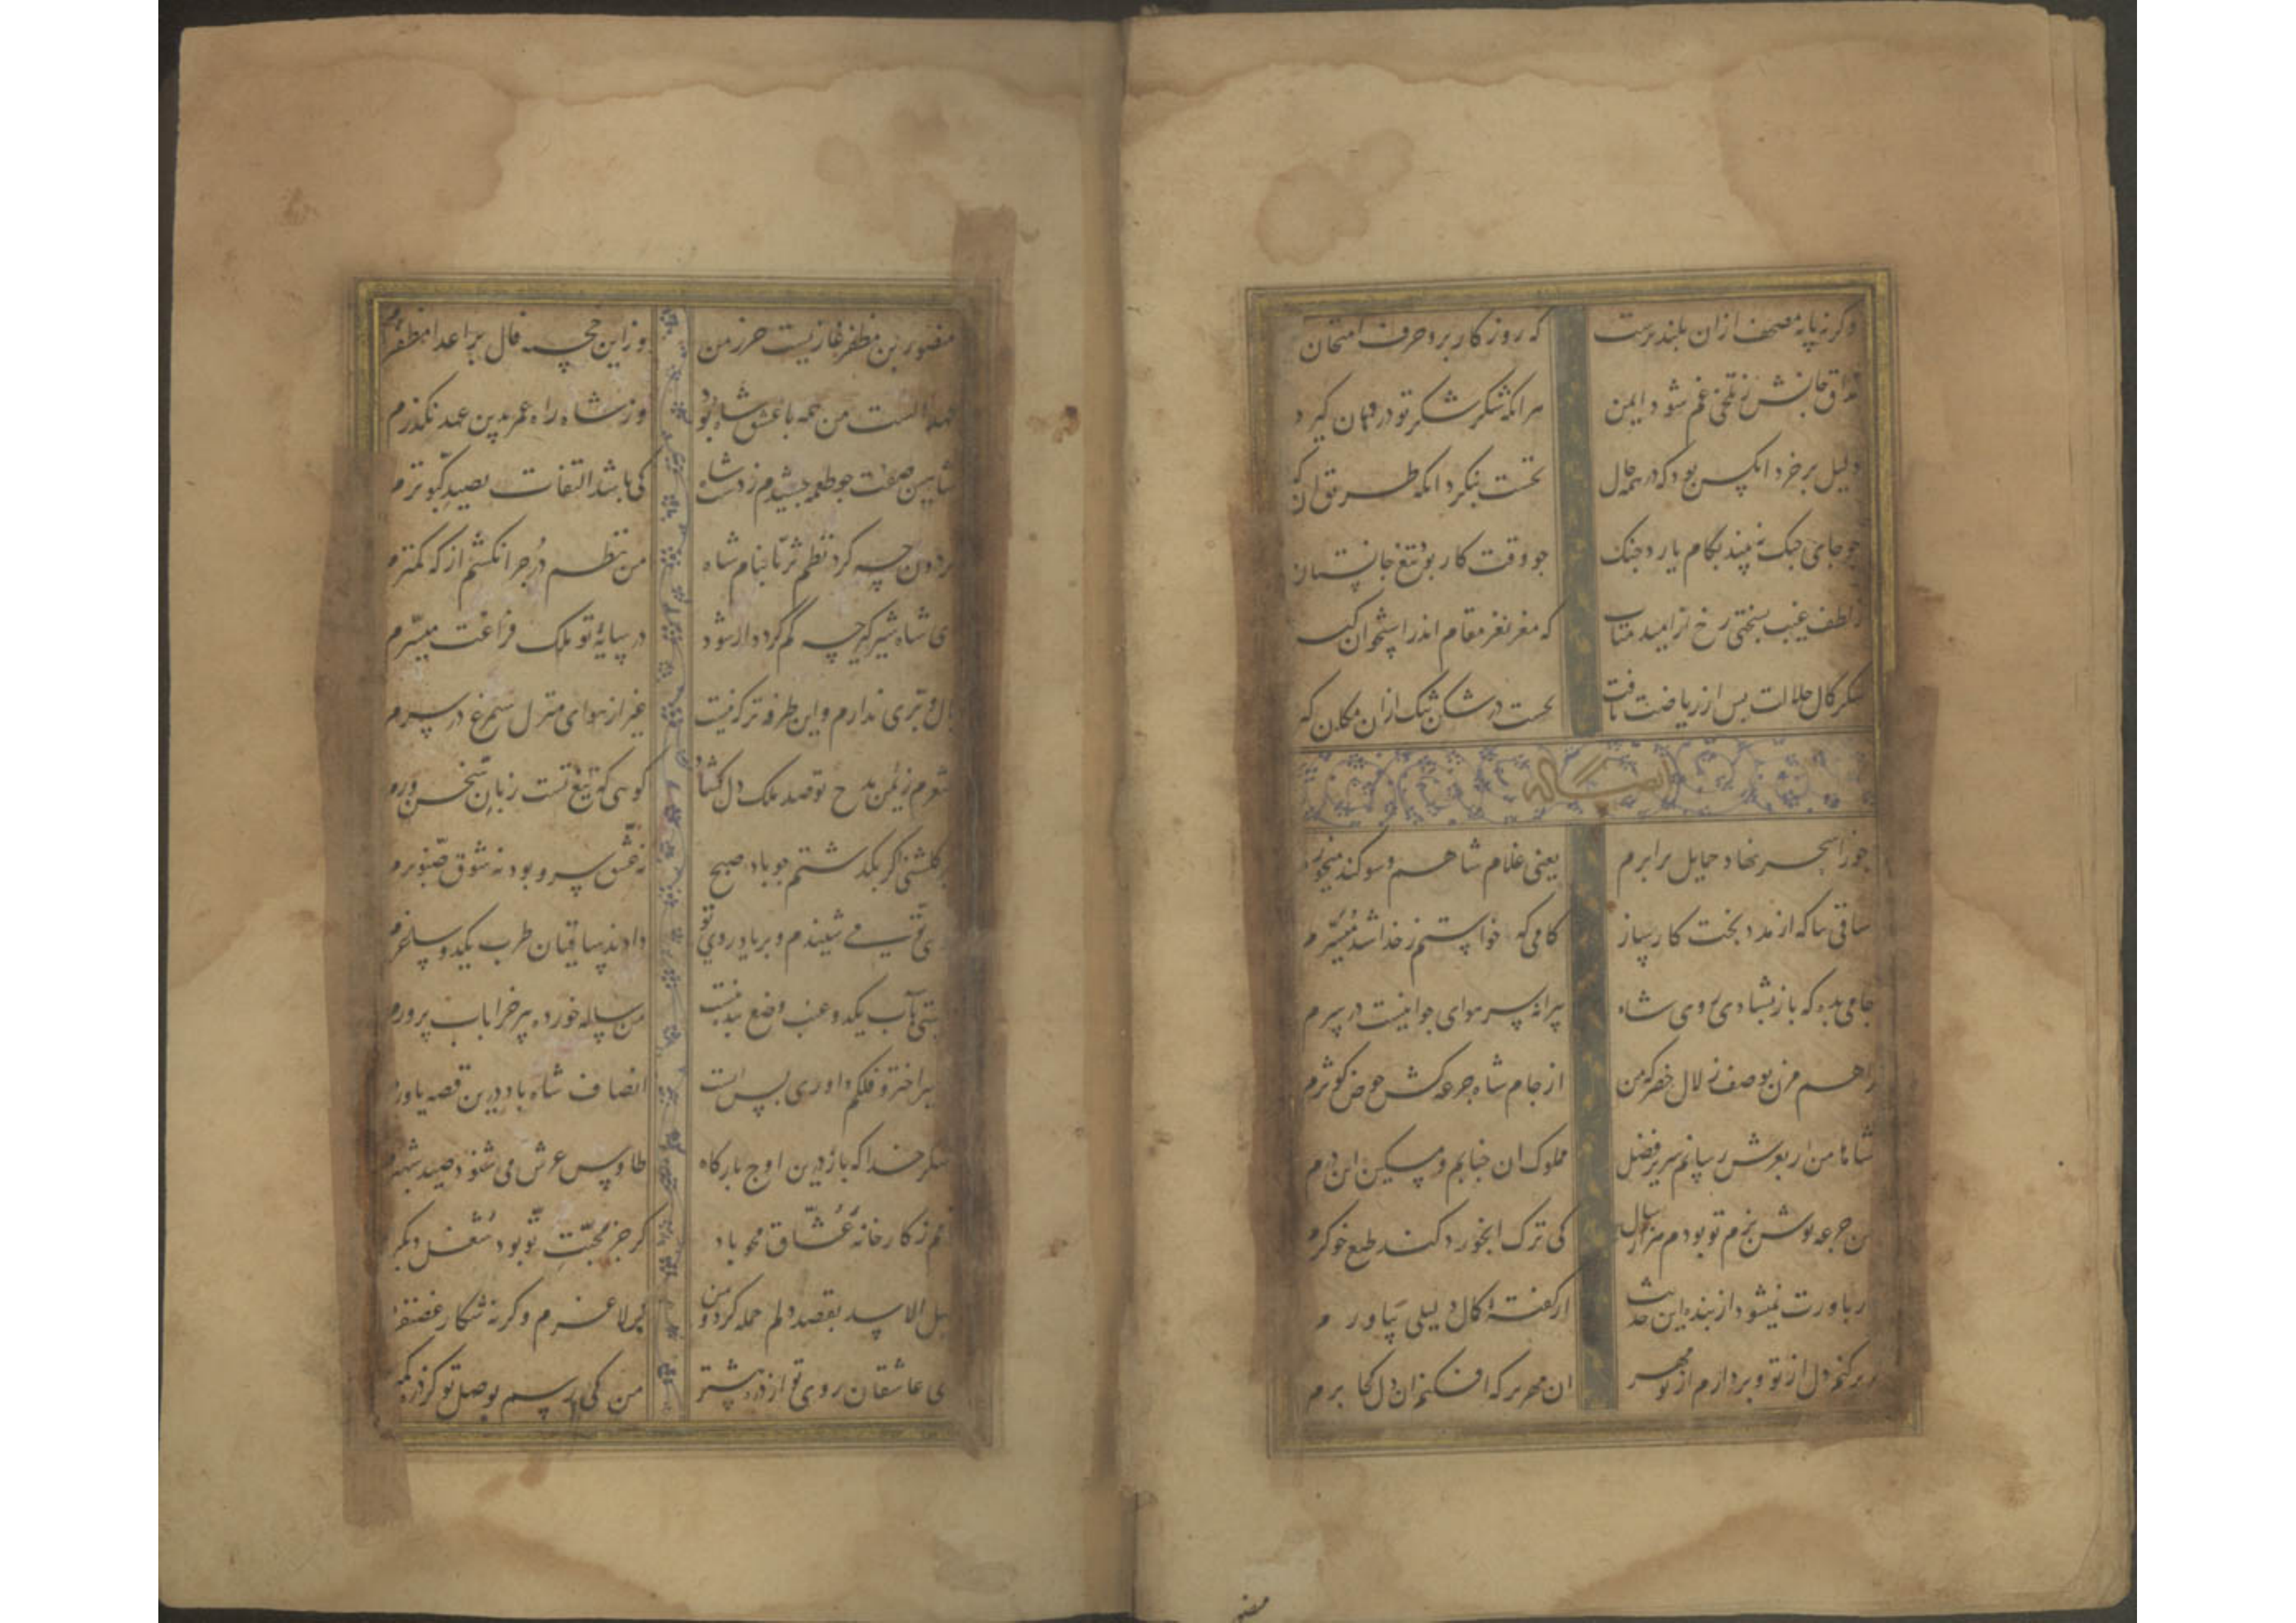 وکر نه پایه مصحف ازان بلندترست که روزکار برو حرف امتحان
مذاق جانش ز تلخی غم شود ایمن هرانکه شکر شکر تو در دهان کیرد
دلیل برخرد انکس بود که در همه حال نخست بنکرد انکه طریق ان که
جو جای جنک نه بیند بکام یازد جنک جو وقت کار بود تیغ جانستان
ز لطف غیب بسختی رخ از امید متاب که مغز نغز مقام اندر استخوان
شکر کمال حلاوت پس از ریاضت یافت نخست در شکن تنک ازان مکان که
جوزا سحر نهاد حمایل برابرم یعنی غلام شاهم و سوکند میخورم
ساقی بیا که از مدد بخت کارساز کامی که خواستم ز خدا شد میسرم
جامی بده که باز بشادی روی شاه پیرانه سر هوای جوانیست در سرم
راهم مزن بوصف زلال خضر که من از جام شاه جرعه کش حوض کوثرم
شاها من ار بعرش رسانم سریر فضل مملوک ان جنابم و مسکین این درم
من جرعه نوش بزم تو بودم هزار سال کی ترک ابخورد کند طبع خوکرم
ور باورت نمیشود از بنده این حدیث از کفته کمال دلیلی بیاورم
کر برکنم دل از تو و بردارم از تو مهر ان مهر بر که افکنم ان دل کجا برم
منصور بن مظفر غازیست حرز من وز این خجسته فال بر اعدا مظفرم
عهد الست من همه با عشق شاه بود وز شاه راه عمر بدین عهد نکذرم
شاهین صفت جو طعمه چشیدم ز دست شاه کی باشد التفات بصید کبوترم
کردون چه کرد نظم ثریا بنام شاه من نظم در چرا نکشم از که کمترم
ای شاه شیر کیر چه کم کردد ار شود در سایه تو ملک فراغت میسرم
بال و پری ندارم و این طرفه تر که نیست غیر از هوای منزل سیمرغ در سرم
شعرم ز یمن مدح تو صد ملک دل کشاد کویی که تیغ تست زبان سخن ورم
بر کلشنی اکر بکذشتم جو باد صبح نه عشق سرو بود نه شوق صنوبرم
بوی تو می شنیدم و بر یاد روی تو دادند ساقیان طرب یکدو ساغرم
مستی بآب یکدو عنب وضع بنده نیست من سالخورده پیر خرابات پرورم
با سیر اختر و فلکم داوری بسی است انصاف شاه باد درین قصه یاورم
شکر خدا که باز درین اوج بارکاه طاوس عرش می شنود صیت شهپرم
نامم ز کارخانه عشاق محو باد کر جز محبت تو بود شغل دیکرم
شبل الاسد بقصد دلم حمله کرد و من کر لاغرم وکرنه شکار غضنفرم
ای عاشقان روی تو از ذره بیشتر من کی رسم بوصل تو کز ذره کمترم